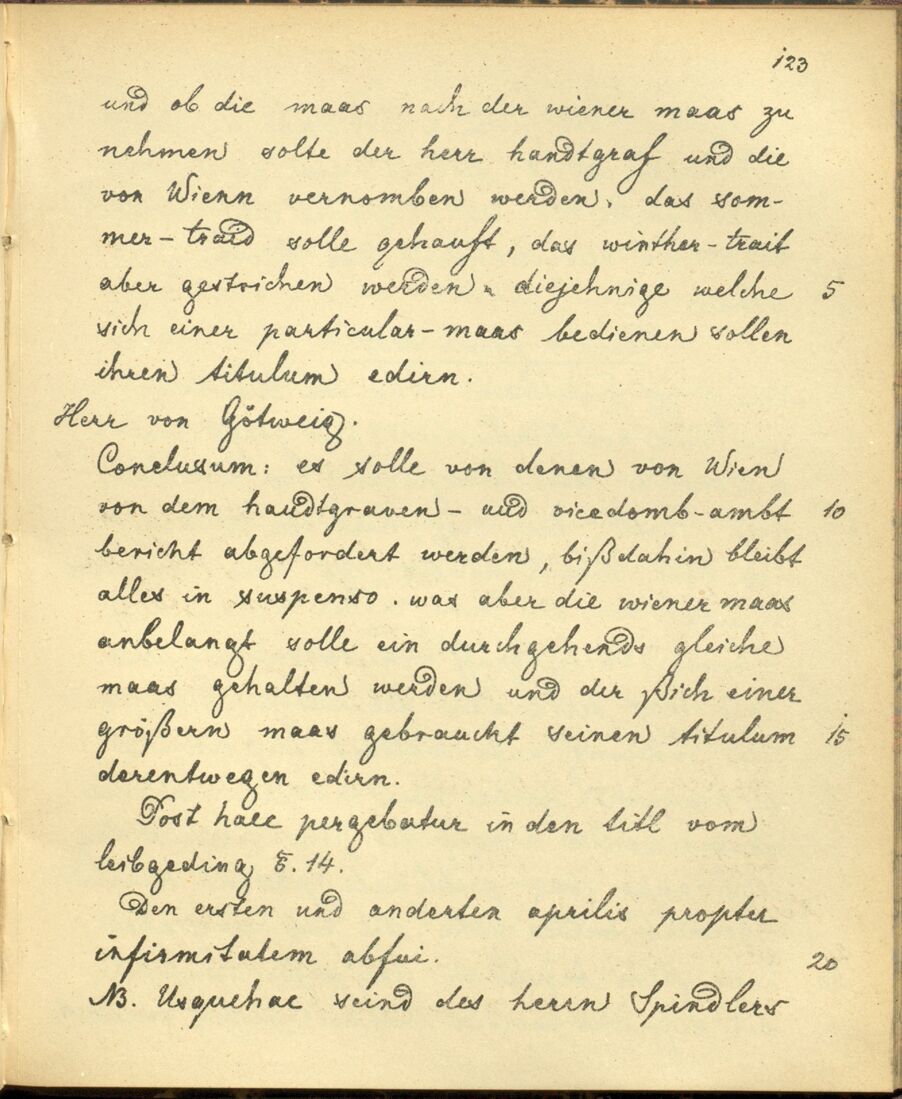 123
und ob die maas nach der wiener maas zu
nehmen solte der herr handtgraf und die
von Wienn vernomben werden. das som-
mer-traid solle gehauft, das winther-trait
aber gestrichen werden. diejehnige welche 5
sich einer particular-maas bedienen sollen
ihren titulum edirn.
Herr von Götweig.
Conclusum: es solle von denen von Wien
von dem handtgraven- und vicedomb-ambt 10
bericht abgefordert werden, bißdahin bleibt
alles in suspenso. was aber die wiener maas
anbelangt solle ein durchgehends gleiche
maas gehalten werden und der ßich einer
größern maas gebraucht seinen titulum 15
derentwegen edirn.
Post haec pergebatur in den titl vom
leibgeding §. 14.
Den ersten und anderten aprilis propter
infirmitatem abfui. 20
NB. Usquehac seind des herrn Spindlers